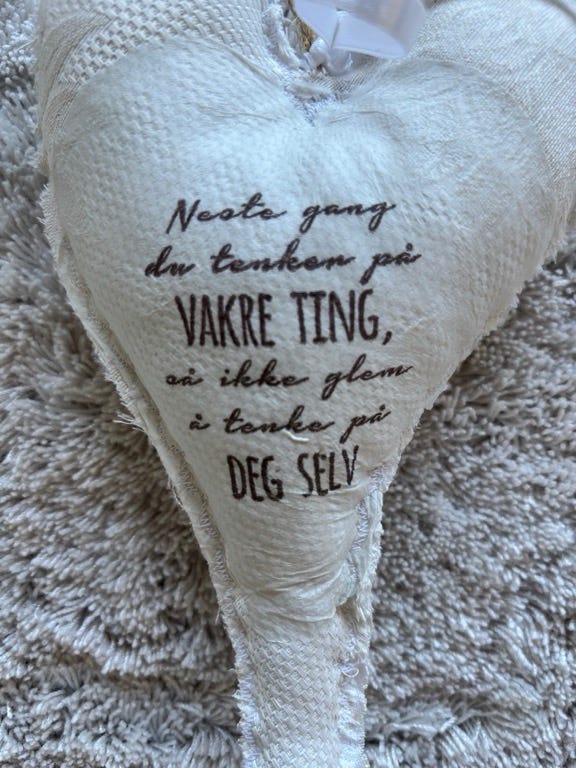 Neste gang
du tenker på
VAKRE TING,
så ikke glem
å tenke på
DEG SELV